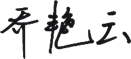 乔艳云